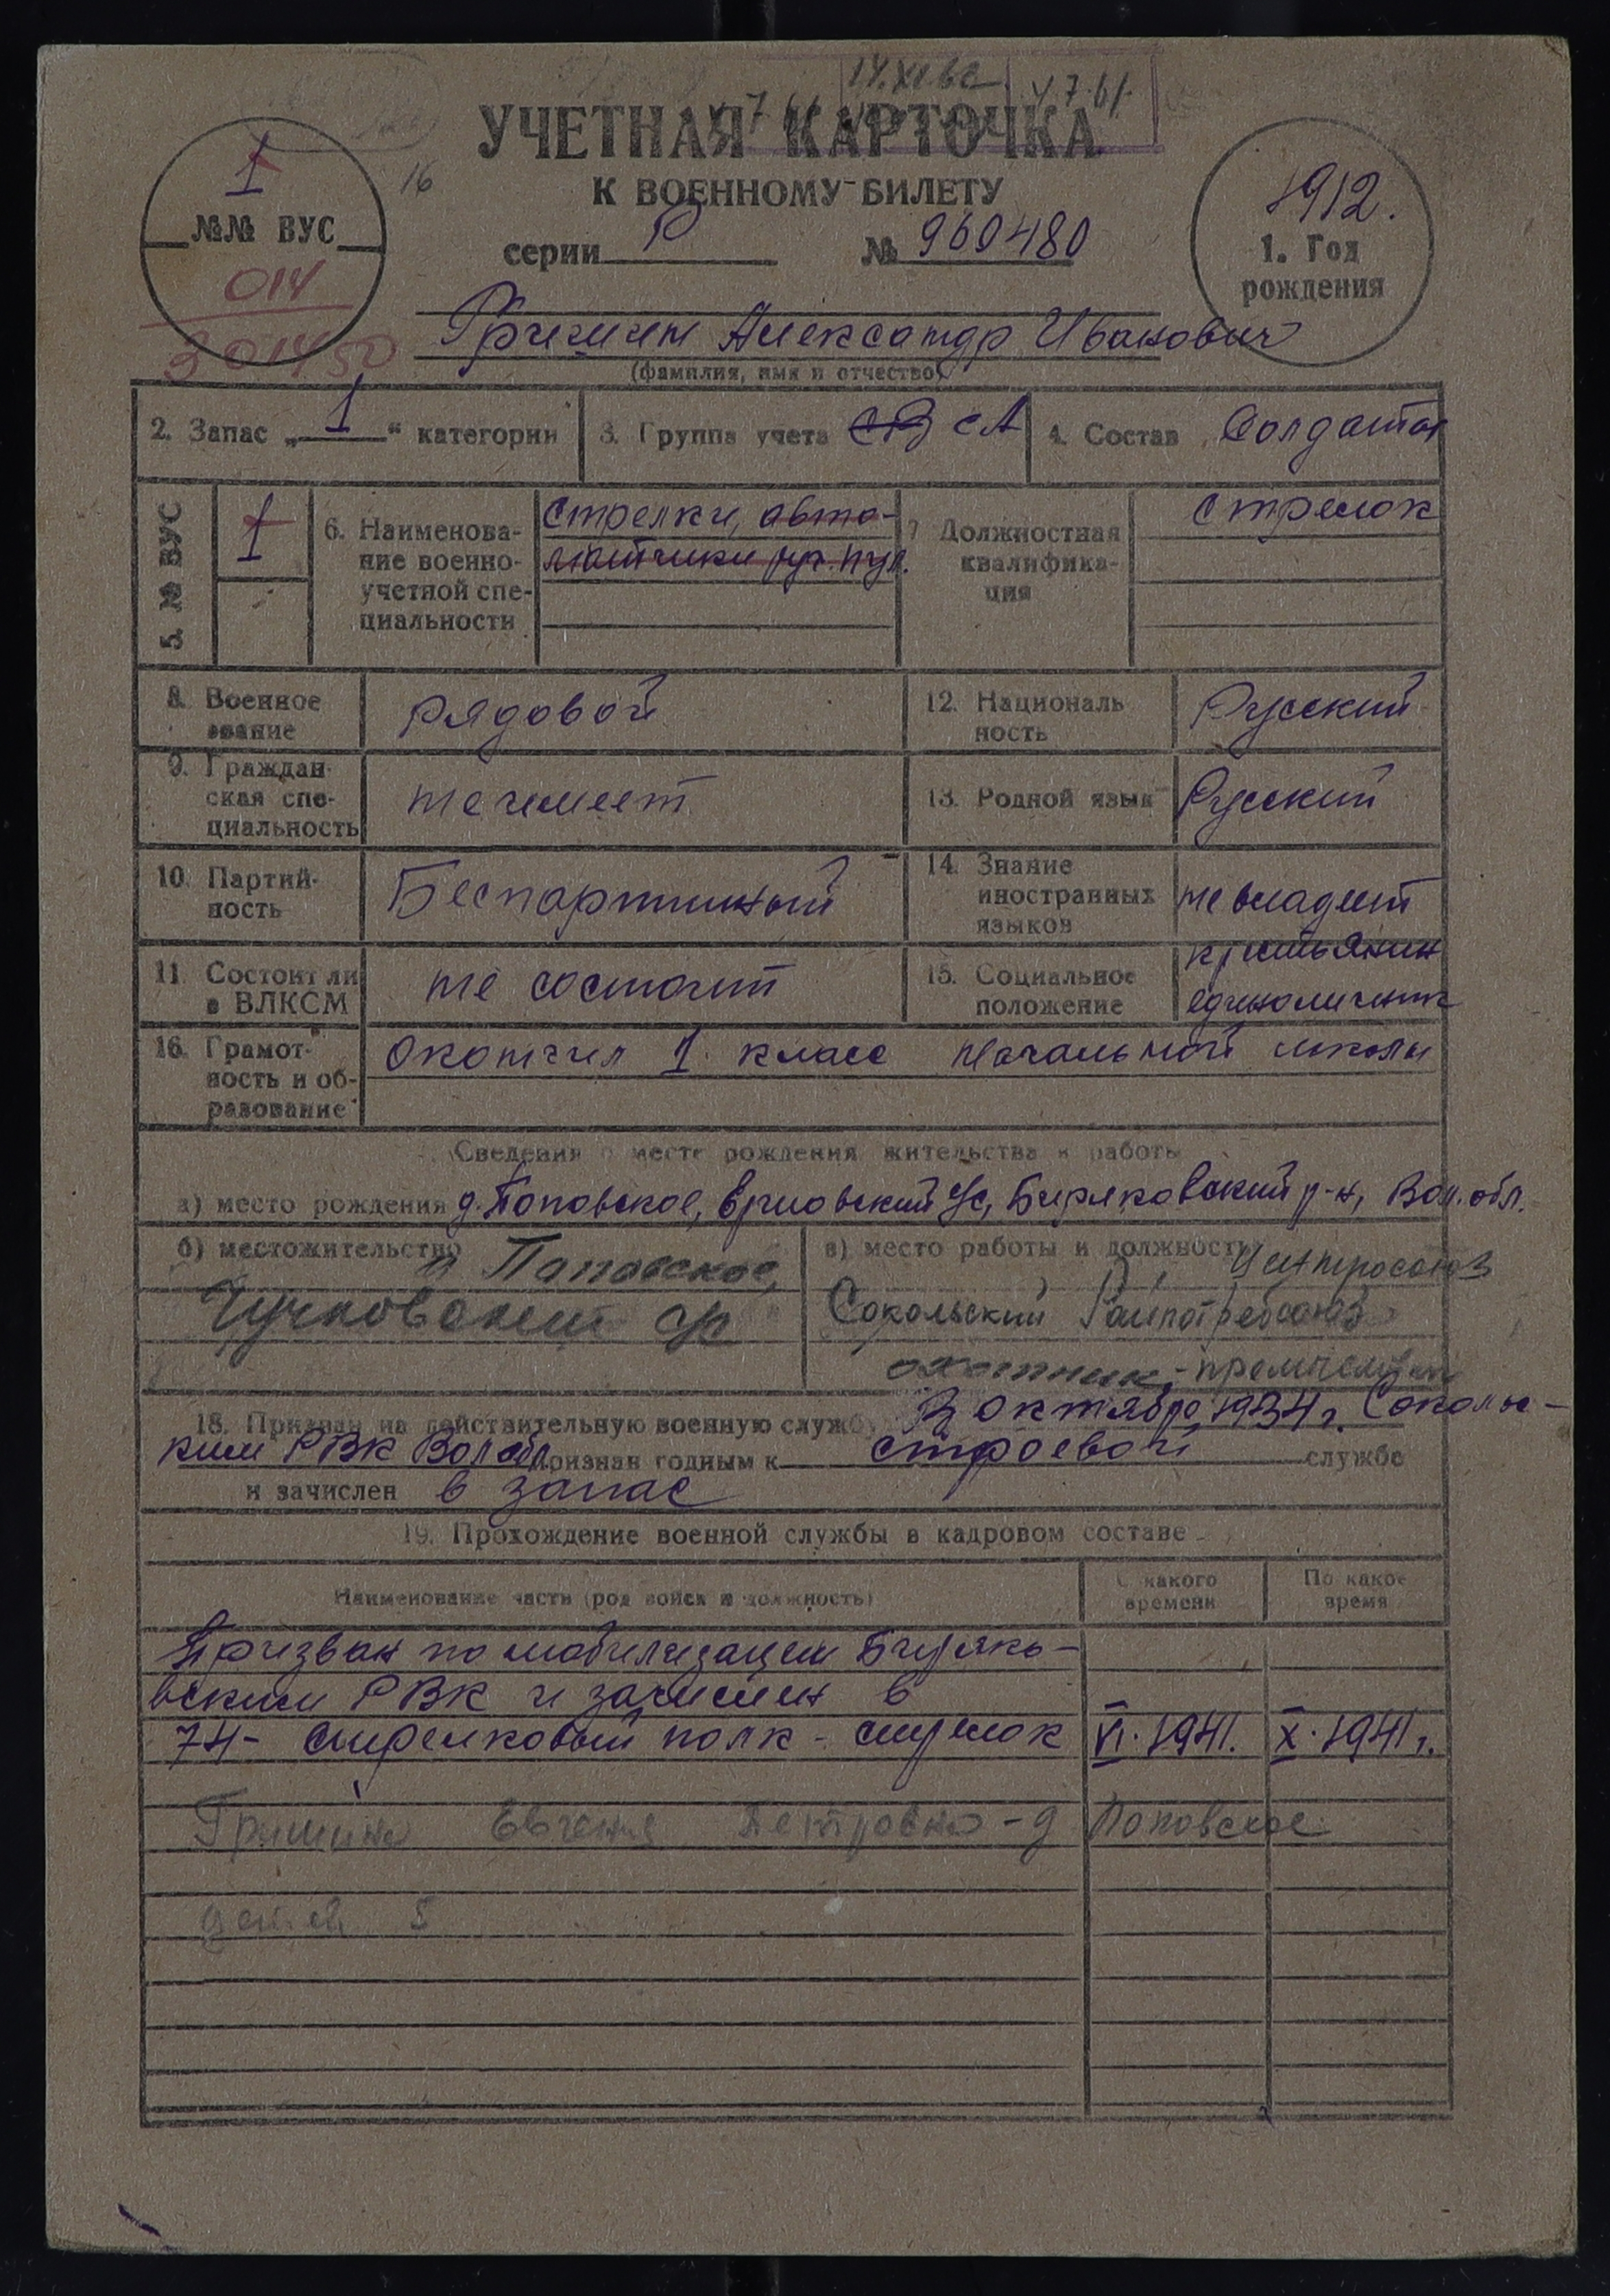 14.XI.62 4.7.61.
УЧЕТНАЯ КАРТОЧКА
16
К ВОЕННОМУ БИЛЕТУ
серии Р № 960480
1
№№ ВУС
014
301450
1912.
1. Год
рождения
Гришин Александр Иванович
(фамилия, имя и отчество)
2. Запас „1“ категории
3. Группа учета СВ СА
4. Состав Солдаты
5. № ВУС 1
6. Наименова-
ние военно-
учетной спе-
циальности
стрелки, авто-
матчики руч. пул.
7 Должностная
квалифика-
ция
стрелок
8. Военное
звание
рядовой
12. Националь
ность
Русский
9. Граждан-
ская спе-
циальность
не имеет
13. Родной язык Русский
10. Партий-
ность
Беспартийный
14. Знание
иностранных
языков
не владеет
11. Состоит ли
в ВЛКСМ
не состоит
15. Социальное
положение
крестьянин
единоличник
16. Грамот-
ность и об-
разование
окончил 1 класс начальной школы
Сведения о месте рождения жительства и работы
а) место рождения д. Поповское, с/с, Биряковский р-н, Вол. обл.
б) местожительство д Поповское,
Чучковский с/с
в) место работы и должность Центросоюз
Сокольский Райпотребсоюз
охотник-
18. Призван на действительную военную службу 3 октября 1934 г. Соколь-
ким РВК Вол обл признан годным к строевой службе
и зачислен в запас
19. Прохождение военной службы в кадровом составе
Наименование части (род войск и должность)
С какого
времени
По какое
время
Призван по мобилизации Биряко-
вским РВК и зачислен в
74- стрелковый полк - стрелок VI. 1941. X. 1941 г.
Гришина Евгения Петровна - д Поповское
детей 5